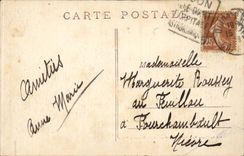 CARTE POSTALE
Amitiés
Anne Marie
Mademoiselle
Marguerite Roussey
au Feuillou
à Fourchambault
Nièvre